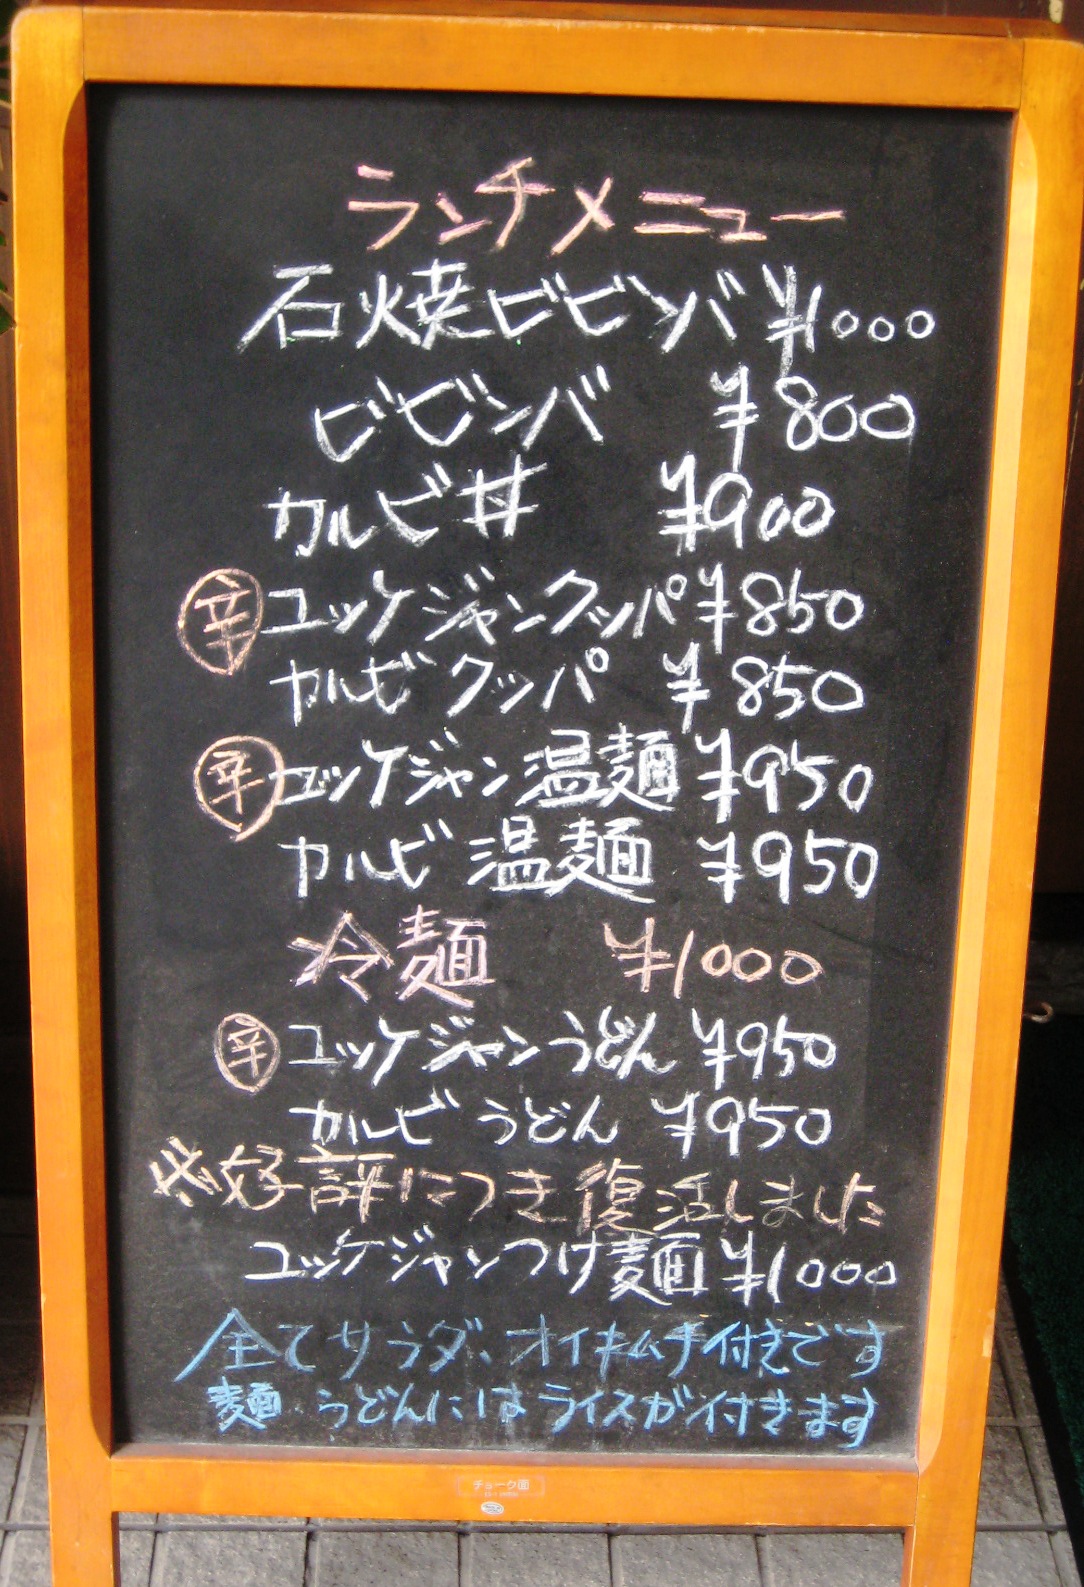 ランチメニュー
石焼ビビンバ ¥1000
ビビンバ ¥800
カルビ丼 ¥900
辛 ユッケジャンクッパ ¥850
カルビクッパ ¥850
辛 ユッケジャン温麺 ¥950
カルビ温麺 ¥950
冷麺 ¥1000
辛 ユッケジャンうどん ¥950
カルビうどん ¥950
※好評につき復活しました
ユッケジャンつけ麺 ¥1000
全てサラダ、オイキムチ付きです
麺、うどんにはライスが付きます
チョーク面